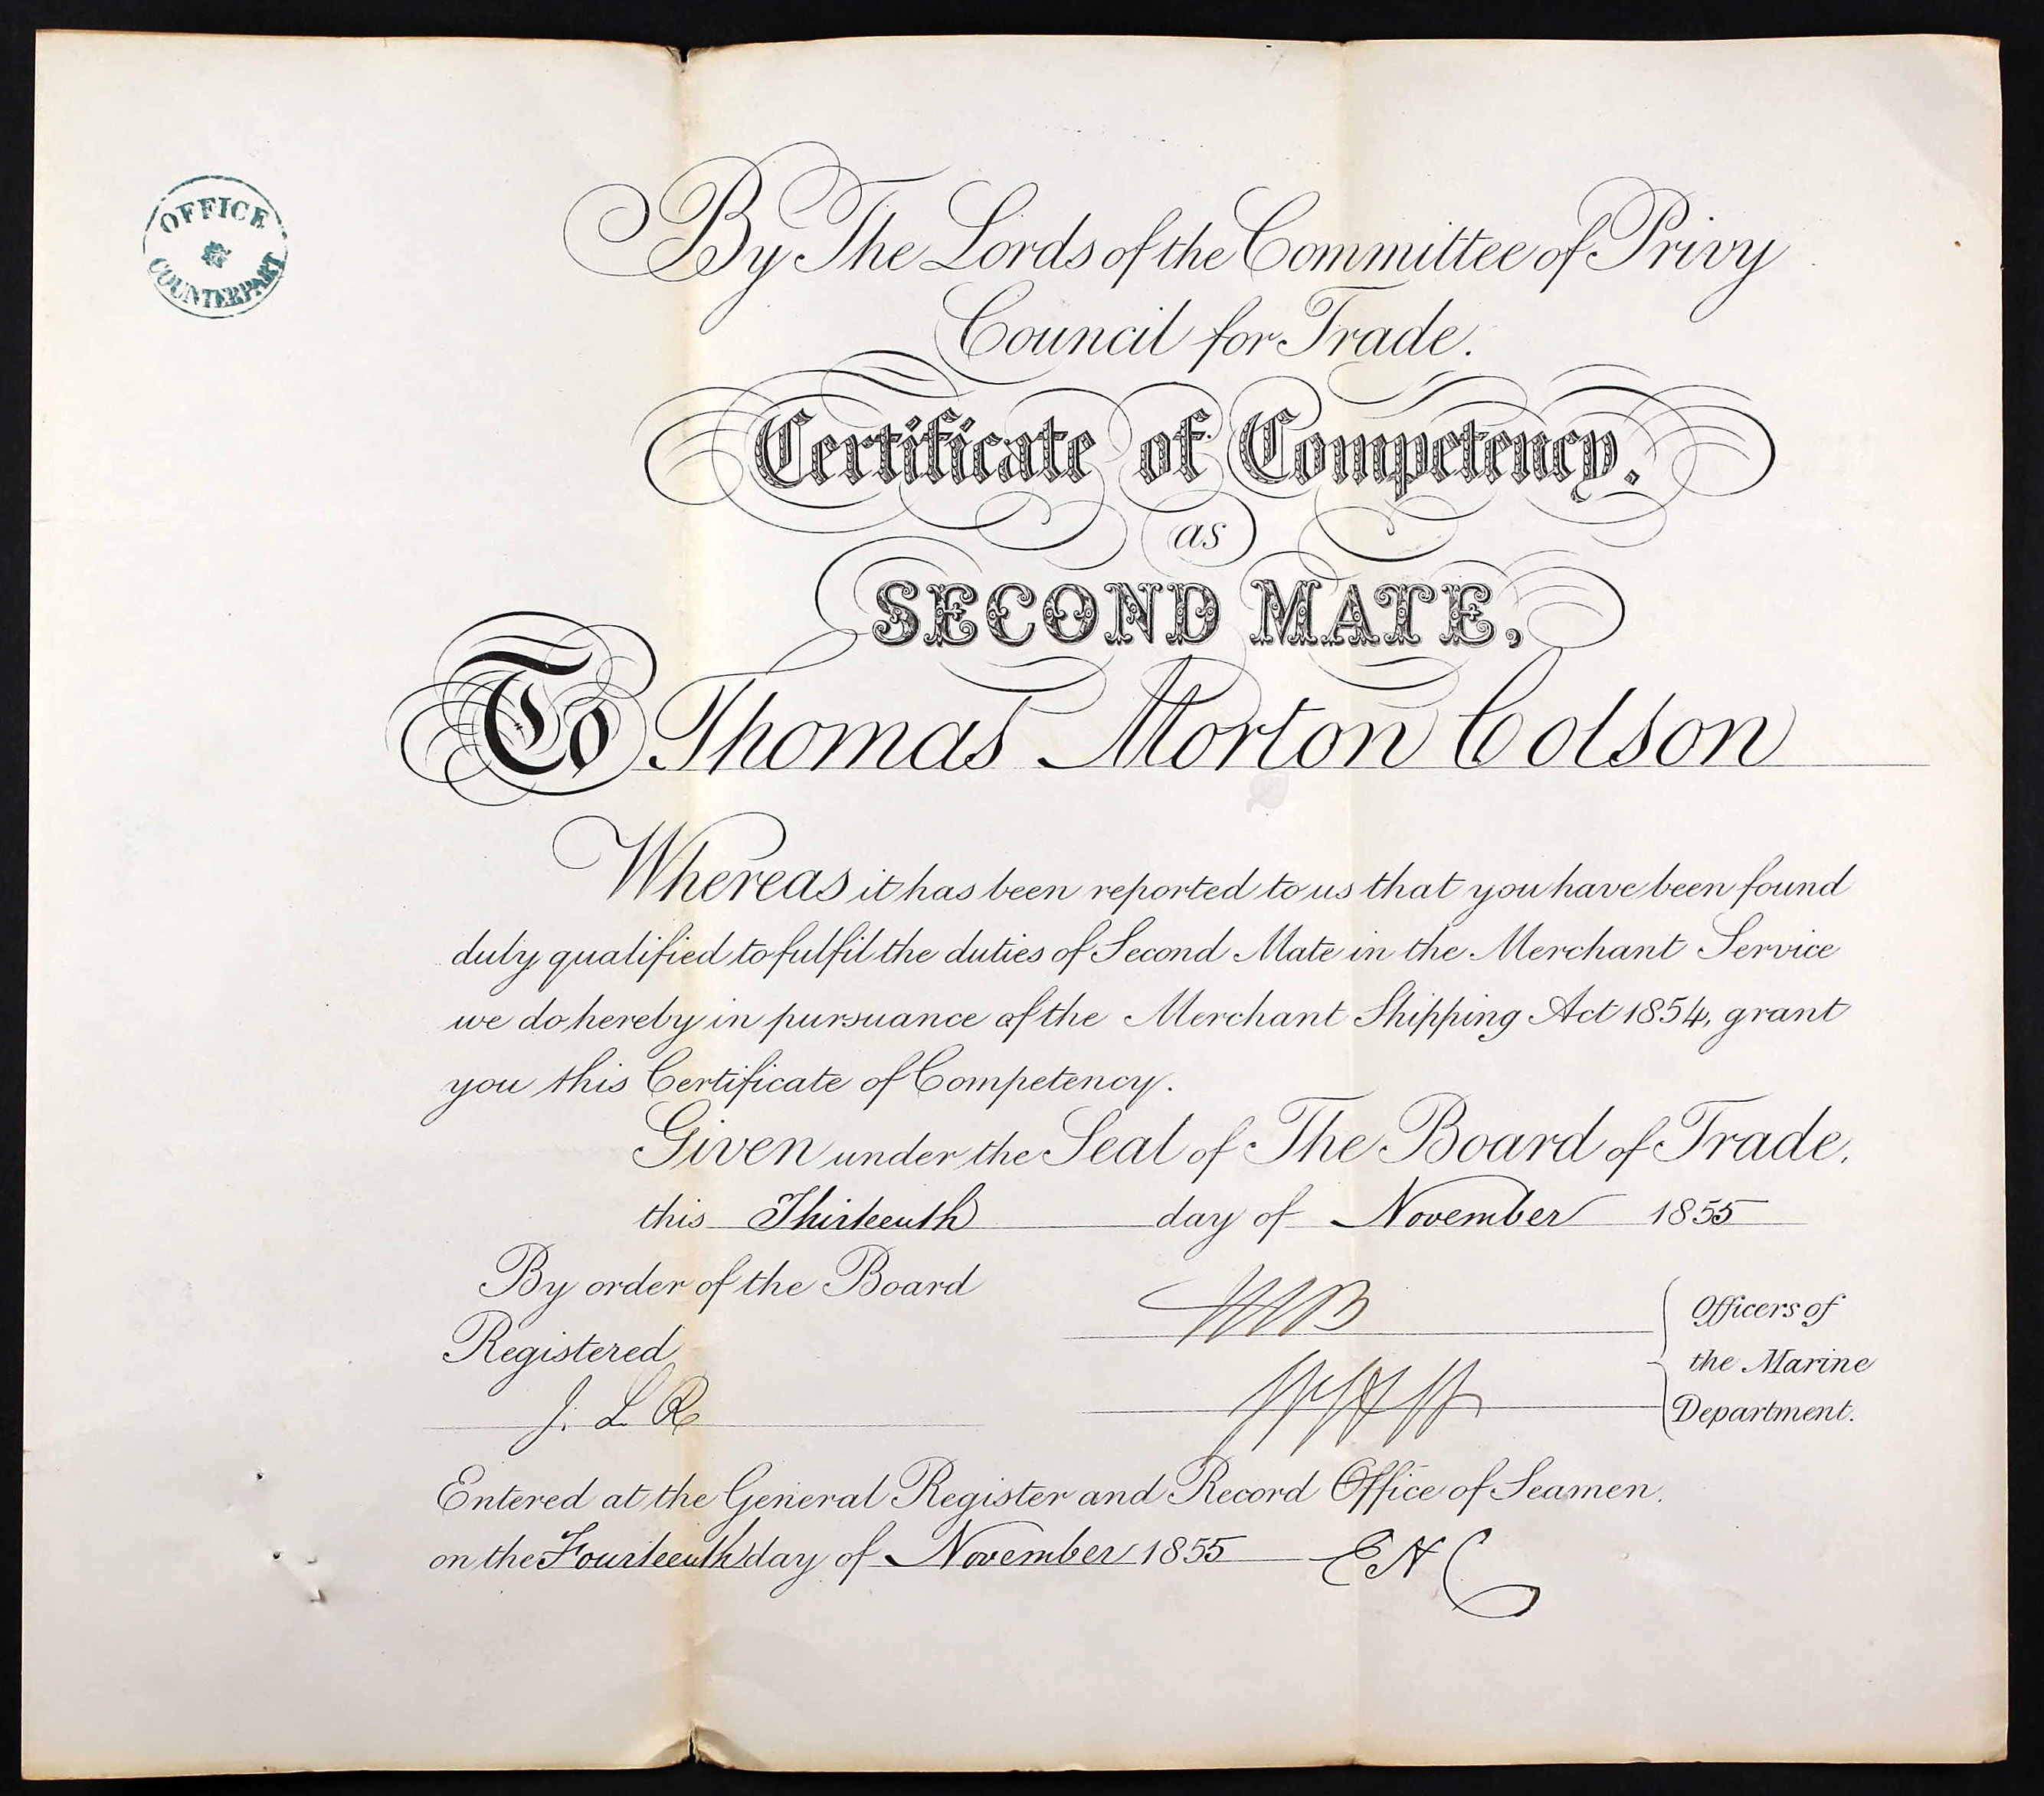 OFFICE
COUNTERPART
By The Lords of the Committee of Privy
Council for Trade.
Certificate of Competency.
as
SECOND MATE,
To Thomas Morton Colson
Whereas it has been reported to us that you have been found
duly qualified to fulfil the duties of Second Mate in the Merchant Service
we do hereby in pursuance of the Merchant Shipping Act 1854, grant
you this Certificate of Competency.
Given under the Seal of The Board of Trade,
this Thirteenth day of November 1855
By order of the Board
Officers of
Registered
the Marine
J. L R
Department.
Entered at the General Register and Record Office of Seamen.
on the Fourteenth day of November 1855 E N C